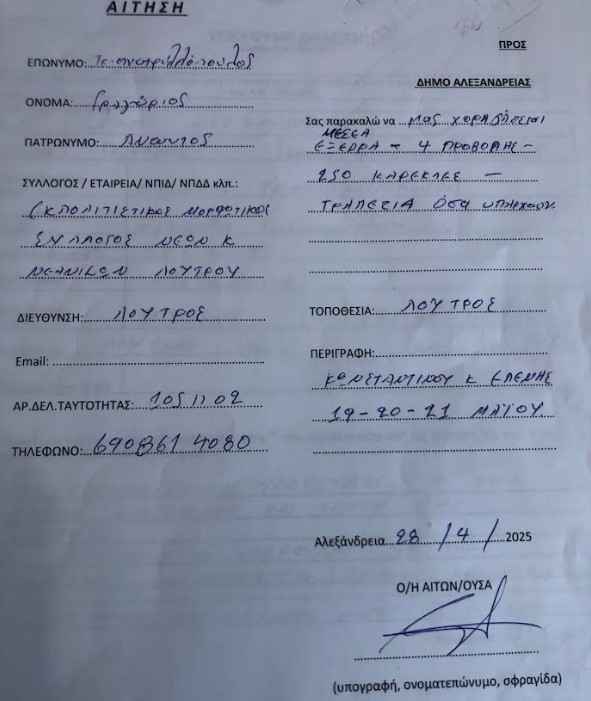 ΑΙΤΗΣΗ
ΕΠΩΝΥΜΟ:
ΟΝΟΜΑ: Γρηγόριος
ΠΑΤΡΩΝΥΜΟ:
ΣΥΛΛΟΓΟΣ / ΕΤΑΙΡΕΙΑ/ ΝΠΙΔ/ ΝΠΔΔ κλπ.:
ΕΚΠΟΛΙΤΙΣΤΙΚΟΣ ΜΟΡΦΩΤΙΚΟΣ
ΣΥΛΛΟΓΟΣ ΝΕΩΝ Κ
ΝΕΑΝΙΔΩΝ ΛΟΥΤΡΟΥ
ΔΙΕΥΘΥΝΣΗ: ΛΟΥΤΡΟΣ
Email:
ΑΡ.ΔΕΛ.ΤΑΥΤΟΤΗΤΑΣ:
ΤΗΛΕΦΩΝΟ:
ΠΡΟΣ
ΔΗΜΟ ΑΛΕΞΑΝΔΡΕΙΑΣ
Σας παρακαλώ να μας
ΜΕΣΣΑ
ΕΞΕΡΡΑ - 4 ΠΡΟΒΟΛΗΣ -
250 ΚΑΡΕΚΛΕΣ -
ΤΡΑΠΕΣΙΑ όσα υπάρχουν
ΤΟΠΟΘΕΣΙΑ: ΛΟΥΤΡΟΣ
ΠΕΡΙΓΡΑΦΗ:
ΚΩΝΣΤΑΝΤΙΝΟΥ Κ ΕΛΕΝΗΣ
19-20-21 ΜΑΪΟΥ
Αλεξάνδρεια 28 / 4 / 2025
Ο/Η ΑΙΤΩΝ/ΟΥΣΑ
(υπογραφή, ονοματεπώνυμο, σφραγίδα)